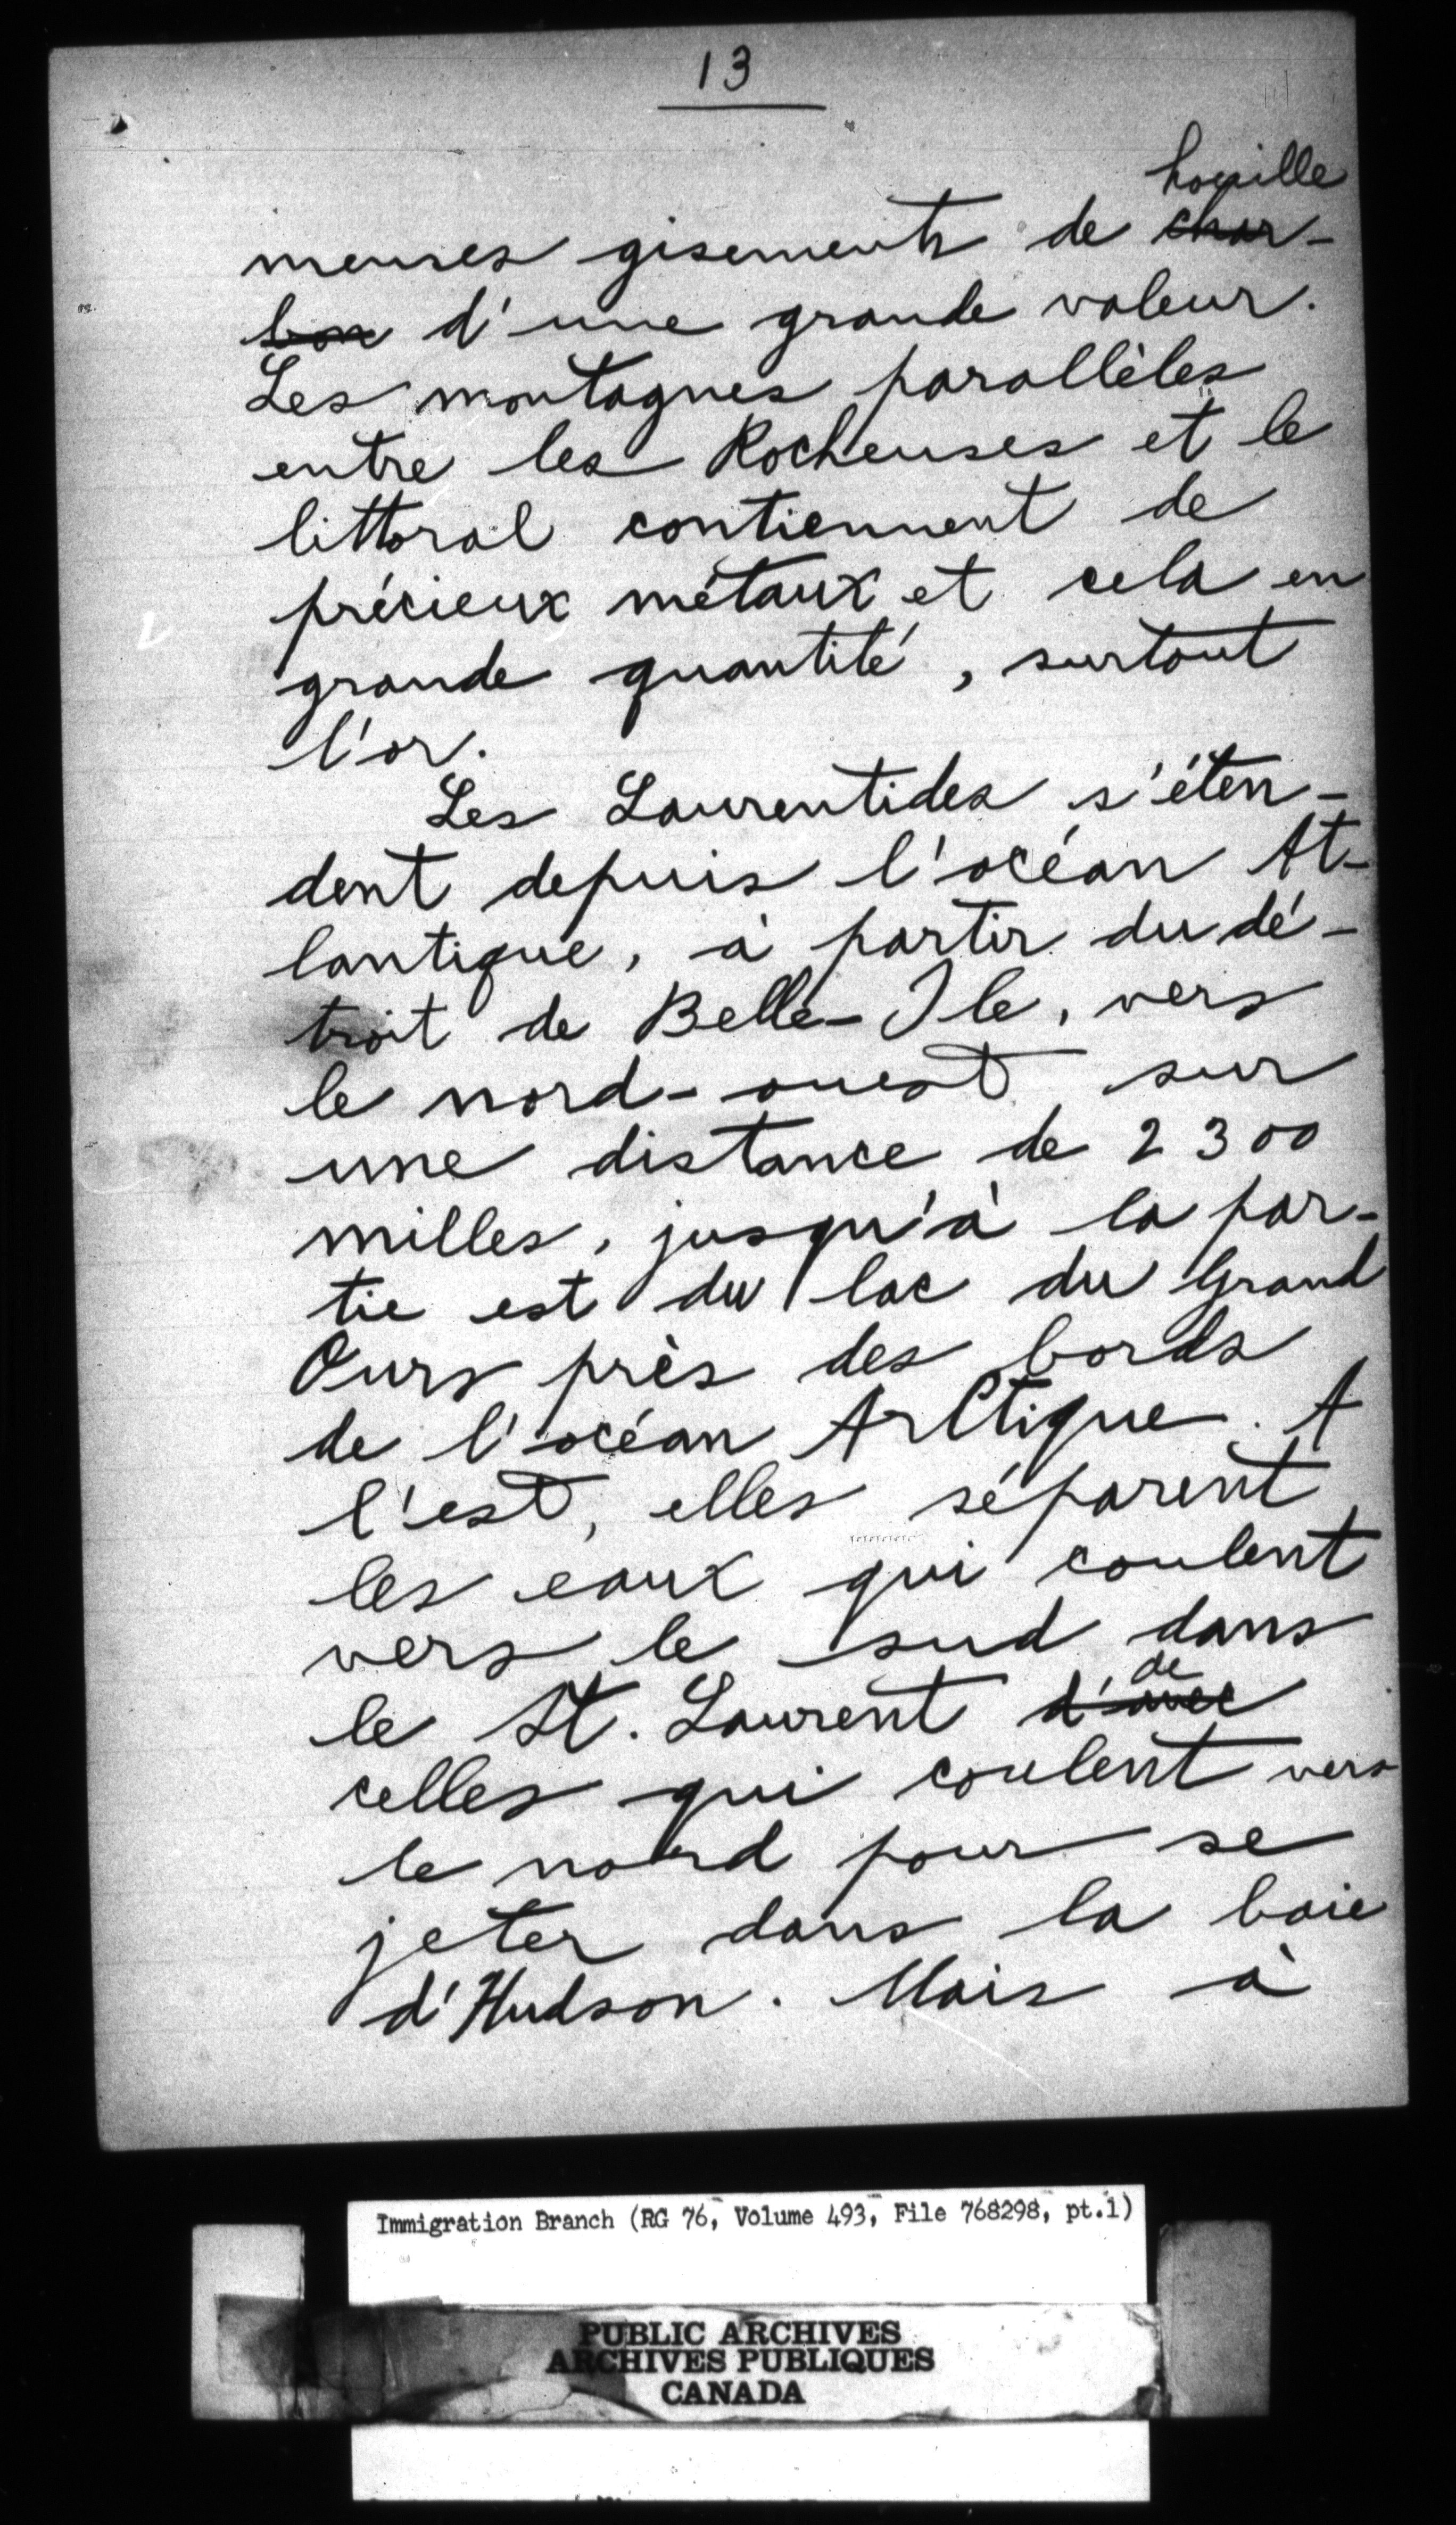 13
houille
menses gisements de char-
bon d'une grande valeur.
Les montagnes parallèles
entre les Rocheuses et le
littoral contiennent de
précieux métaux et cela en
grande quantité, surtout
l'or.
Les Laurentides s'éten-
dent depuis l'océan At-
lantique, à partir du dé-
troit de Belle-Ile, vers
le nord-ouest sur
une distance de 2300
milles, jusqu'à la par-
tie est du lac du Grand
Ours près des bords
de l'océan Arctique. A
l'est, elles séparent
les eaux qui coulent
vers le sud dans
de
le St. Laurent d'avec
celles qui coulent vers
le nord pour se
jeter dans la baie
d'Hudson. Mais à
Immigration Branch (RG 76, Volume 493, File 768298, pt.1)
PUBLIC ARCHIVES
ARCHIVES PUBLIQUES
CANADA